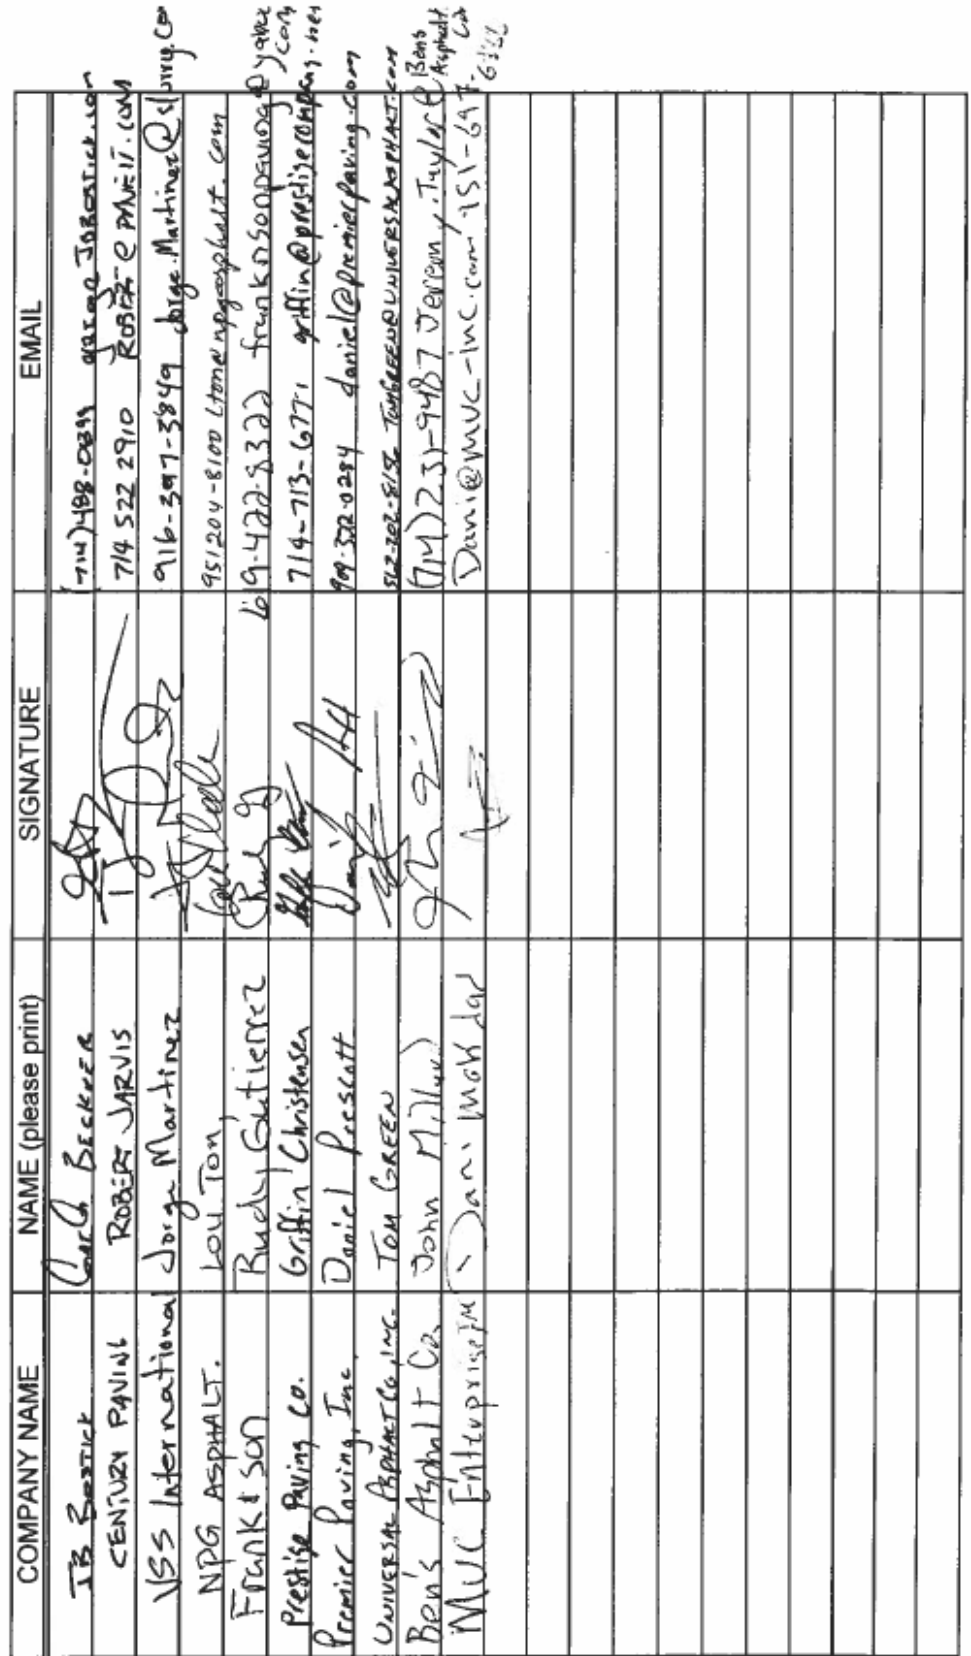 COMPANY NAME NAME (please print) SIGNATURE EMAIL
JB Bostick BECKNER (714)488-0899
CENTURY PAVING ROBERT JARVIS 714 522 2910
VSS International Jorge Martinez 916-397-3849 Jorge.Martinez@slurry.com
NPG ASPHALT. LOU TON 951204-8100 ltone npgasphalt.com
Frank & Son Rudy Gutierrez 619-422-8322 franknsonpaving@yahoo.com
Prestige Paving Co. Griffin Christensen 714-713-6771 griffin@prestigecompany.net
Premier Paving, Inc. Daniel Prescott 909-532-0284 daniel@premierpaving.com
UNIVERSAL ASPHALT CO, INC. TOM GREEN 562-202-8156 TOMGREEN@UNIVERSALASPHALT.COM
Ben's Asphalt Co. John (714)231-9487 Jeremy.Taylor@Bens Asphalt.com
MVC Enterprise Dani Dani@mvc-inc.com 951-697-